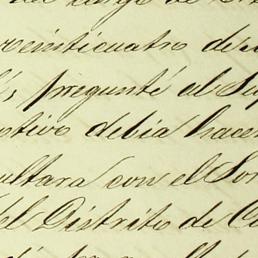 veinticuatro de
pregunté al Sup
otivo debia hacer
ultara con el Sor
del Distrito de Ca